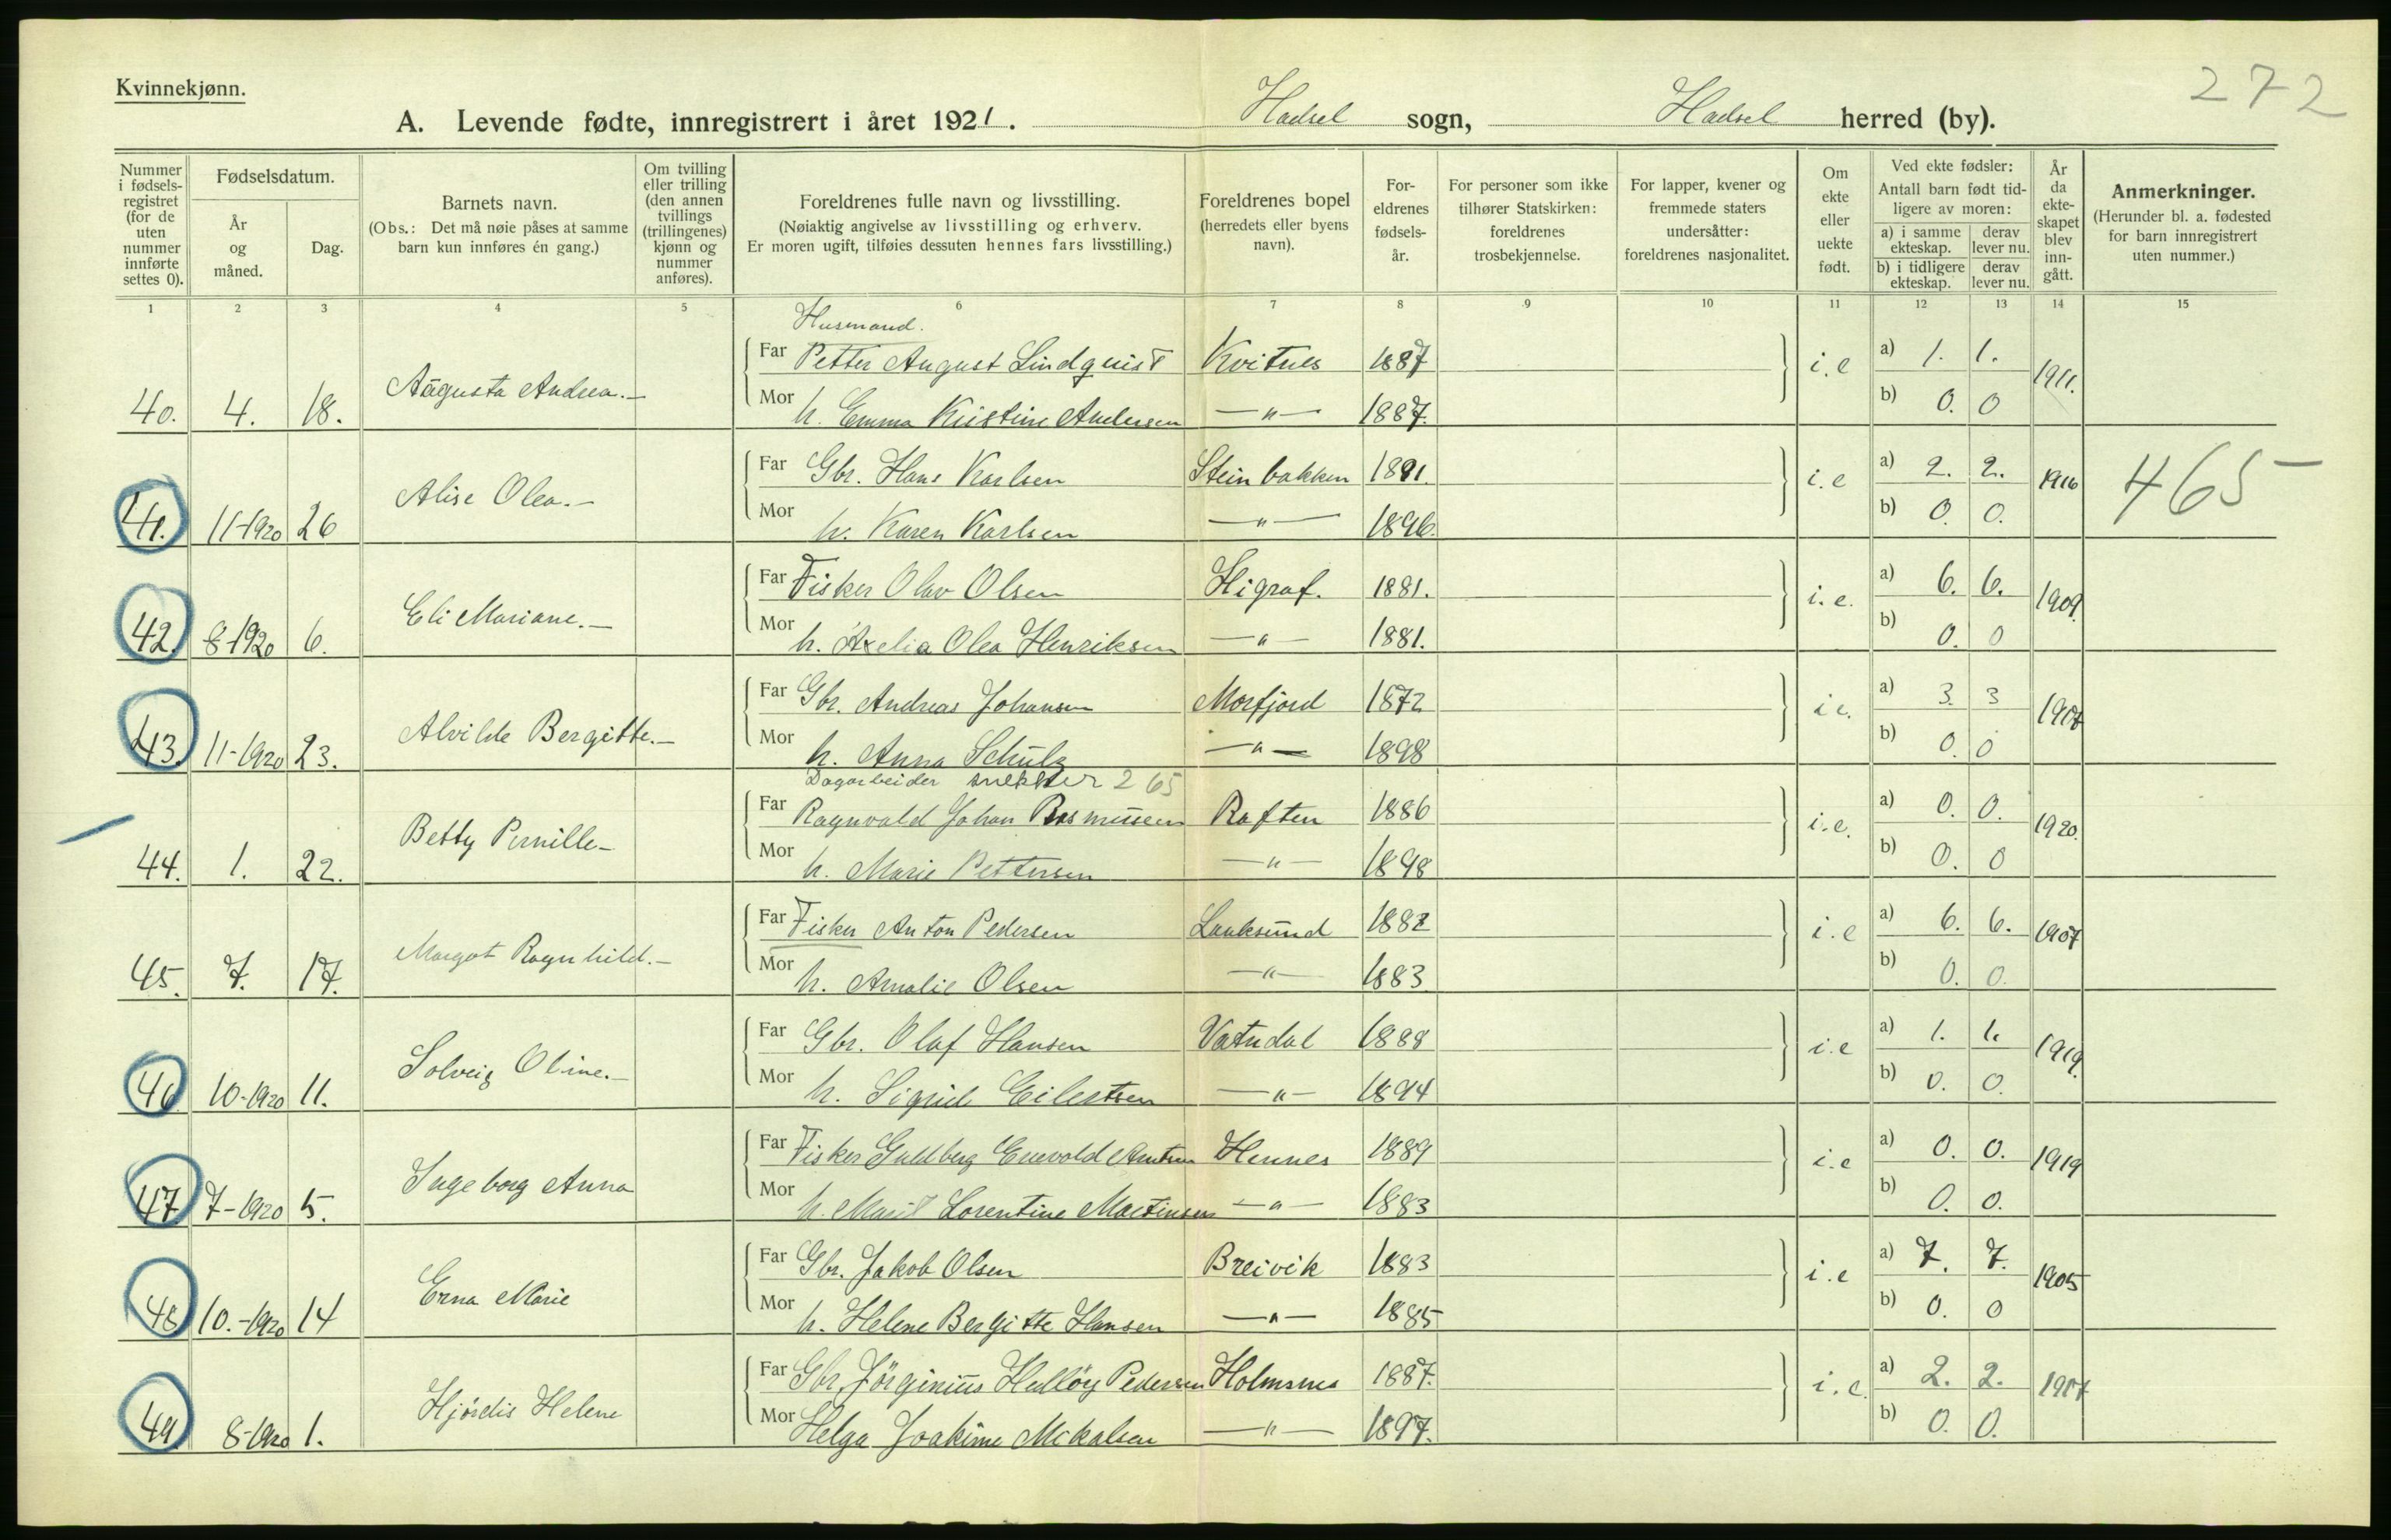 Kvinnekjønn.
272
A. Levende fødte, innregistrert i året 1921. Hadsel sogn, Hadsel herred (by).
Nummer i fødsels-registret (for de uten nummer innførte settes 0).
Fødselsdatum.
År og måned.
Dag.
Barnets navn.
(Obs.: Det må nøie påses at samme barn kun innføres én gang.)
Om tvilling eller trilling (den annen tvillings (trillingenes) kjønn og nummer anføres).
Foreldrenes fulle navn og livsstilling.
(Nøiaktig angivelse av livsstilling og erhverv. Er moren ugift, tilføies dessuten hennes fars livsstilling.)
Foreldrenes bopel (herredets eller byens navn).
For-eldrenes fødsels-år.
For personer som ikke tilhører Statskirken: foreldrenes trosbekjennelse.
For lapper, kvener og fremmede staters undersåtter: foreldrenes nasjonalitet.
Om ekte eller uekte født.
Ved ekte fødsler:
Antall barn født tid-ligere av moren:
a) i samme ekteskap. derav lever nu.
b) i tidligere ekteskap. derav lever nu.
År da ekte-skapet blev inn-gått.
Anmerkninger.
(Herunder bl. a. fødested for barn innregistrert uten nummer.)
1 2 3 4 5 6 7 8 9 10 11 12 13 14 15
Husmand.
Far Petter August Lindquist Kvitnes 1887 i.e a) 1. 1. 1911.
40. 4. 18. Augusta Andrea.-
Mor h. Emma Kristine Andersen -"- 1887. b) 0. 0
Far Gbr. Hans Karlsen Steinbakken 1891. i.e a) 2. 2. 1916 465-
41. 11-1920 26 Alise Olea.-
Mor h. Karen Karlsen -"- 1896. b) 0. 0.
Far Fisker Olav Olsen Higraf. 1881. i.e. a) 6. 6. 1909.
42. 8-1920 6. Eli Mariane.-
Mor h. Axelia Olea Henriksen -"- 1881. b) 0. 0
Far Gbr. Andreas Johansen Morfjord 1872 i e. a) 3. 3
43. 11-1920 23. Alvilde Bergitte.-
Mor h. Anna Schulz -"- 1898 b) 0. 0
Dagarbeider snekker 265
Far Ragnvald Johan Rasmussen Raften 1886 i.e. a) 0. 0. 1920.
44. 1. 22. Betty Pernille-
Mor h. Marie Pettersen -"- 1898 b) 0. 0
Far Fisker Anton Pedersen Lauksund 1882 i.e a) 6. 6. 1907
45. 7. 17. Margot Ragnhild.-
Mor h. Amalie Olsen -"- 1883 b) 0. 0.
Far Gbr. Olaf Hansen Vatndal 1888 i.e a) 1. 1. 1919.
46 10-1920 11. Solveig Oline.-
Mor h. Sigrid Eilertsen -"- 1894 b) 0. 0.
Far Fisker Guldberg Enevold Hennes 1889 i.e a) 0. 0. 1919
47 7-1920 5. Ingeborg Anna
Mor h. Marit Lorentine Martinsen -"- 1883 b) 0. 0.
Far Gbr. Jakob Olsen Breivik 1883 i.e a) 7. 7. 1905
48 10.-1920 14 Erna Marie
Mor h. Helene Bergitte Hansen -"- 1885 b) 0. 0
Far Gbr. Jørginius Pedersen Holmsnes 1887. i.e. a) 2. 2.
49. 8-1920 1. Hjórdis Helene
Mor Helga Joakime Mikalsen -"- 1897. b) 0. 0.